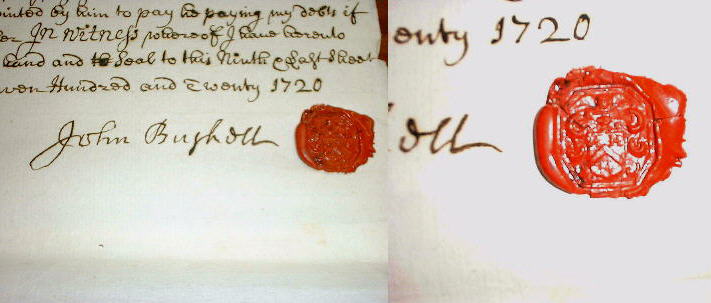 ointed by him to pay be paying my debts if
In witness whereof I have hereto
hand and seal to this Ninth & last sheet
ven Hundred and Twenty 1720
John Buskell
enty 1720
ell